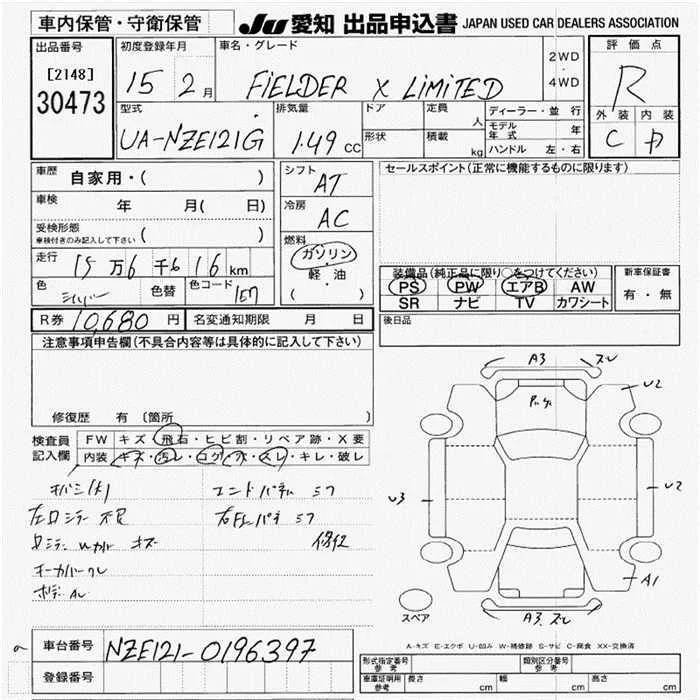 車内保管・守衛保管
JU 愛知 出品申込書 JAPAN USED CAR DEALERS ASSOCIATION
出品番号 初度登録年月 車名・グレード 評価点
[2148] 2WD
30473 15 2月 FiELDER X LiMiTED ・ R
4WD
型式 排気量 ドア 定員 人 ディーラー・並行 外装 内装
UA-NZE121G 1.49 CC モデル年式 年 C D
形状 積載 kg ハンドル 左・右
車歴 自家用・( ) シフト AT セールスポイント(正常に機能するものに限ります)
車検 年 月( 日) 冷房 AC
受検形態
車検付きのみ記入して下さい ( )
燃料
走行 15万6千616km ガソリン 装備品(純正品に限り○をつけてください) 新車保証書
軽・油 PS PW エアB AW 有・無
色 シルバー 色替 色コード 1E7 ( ) SR ナビ TV カワシート
R券 10,680円 名変通知期限 月 日 後日品
注意事項申告欄(不具合内容等は具体的に記入して下さい)
A3 スレ
U2
修復歴 有 〔箇所 〕
検査員 FW キズ・飛石・ヒビ割・リペア跡・X要
記入欄 内装 キズ・汚レ・コゲ・穴・スレ・キレ・破レ
U3 U2
エンドパネル
キズ 修復
A1
スペア A3 スレ
A-キズ E-エクボ U-凹み W-補修跡 S-サビ C-腐食 XX-交換済
車台番号 NZE121-0196397
登録番号
形式指定番号 参考 類別区分番号 参考
車庫証明用 参考 長さ cm 幅 cm 高さ cm